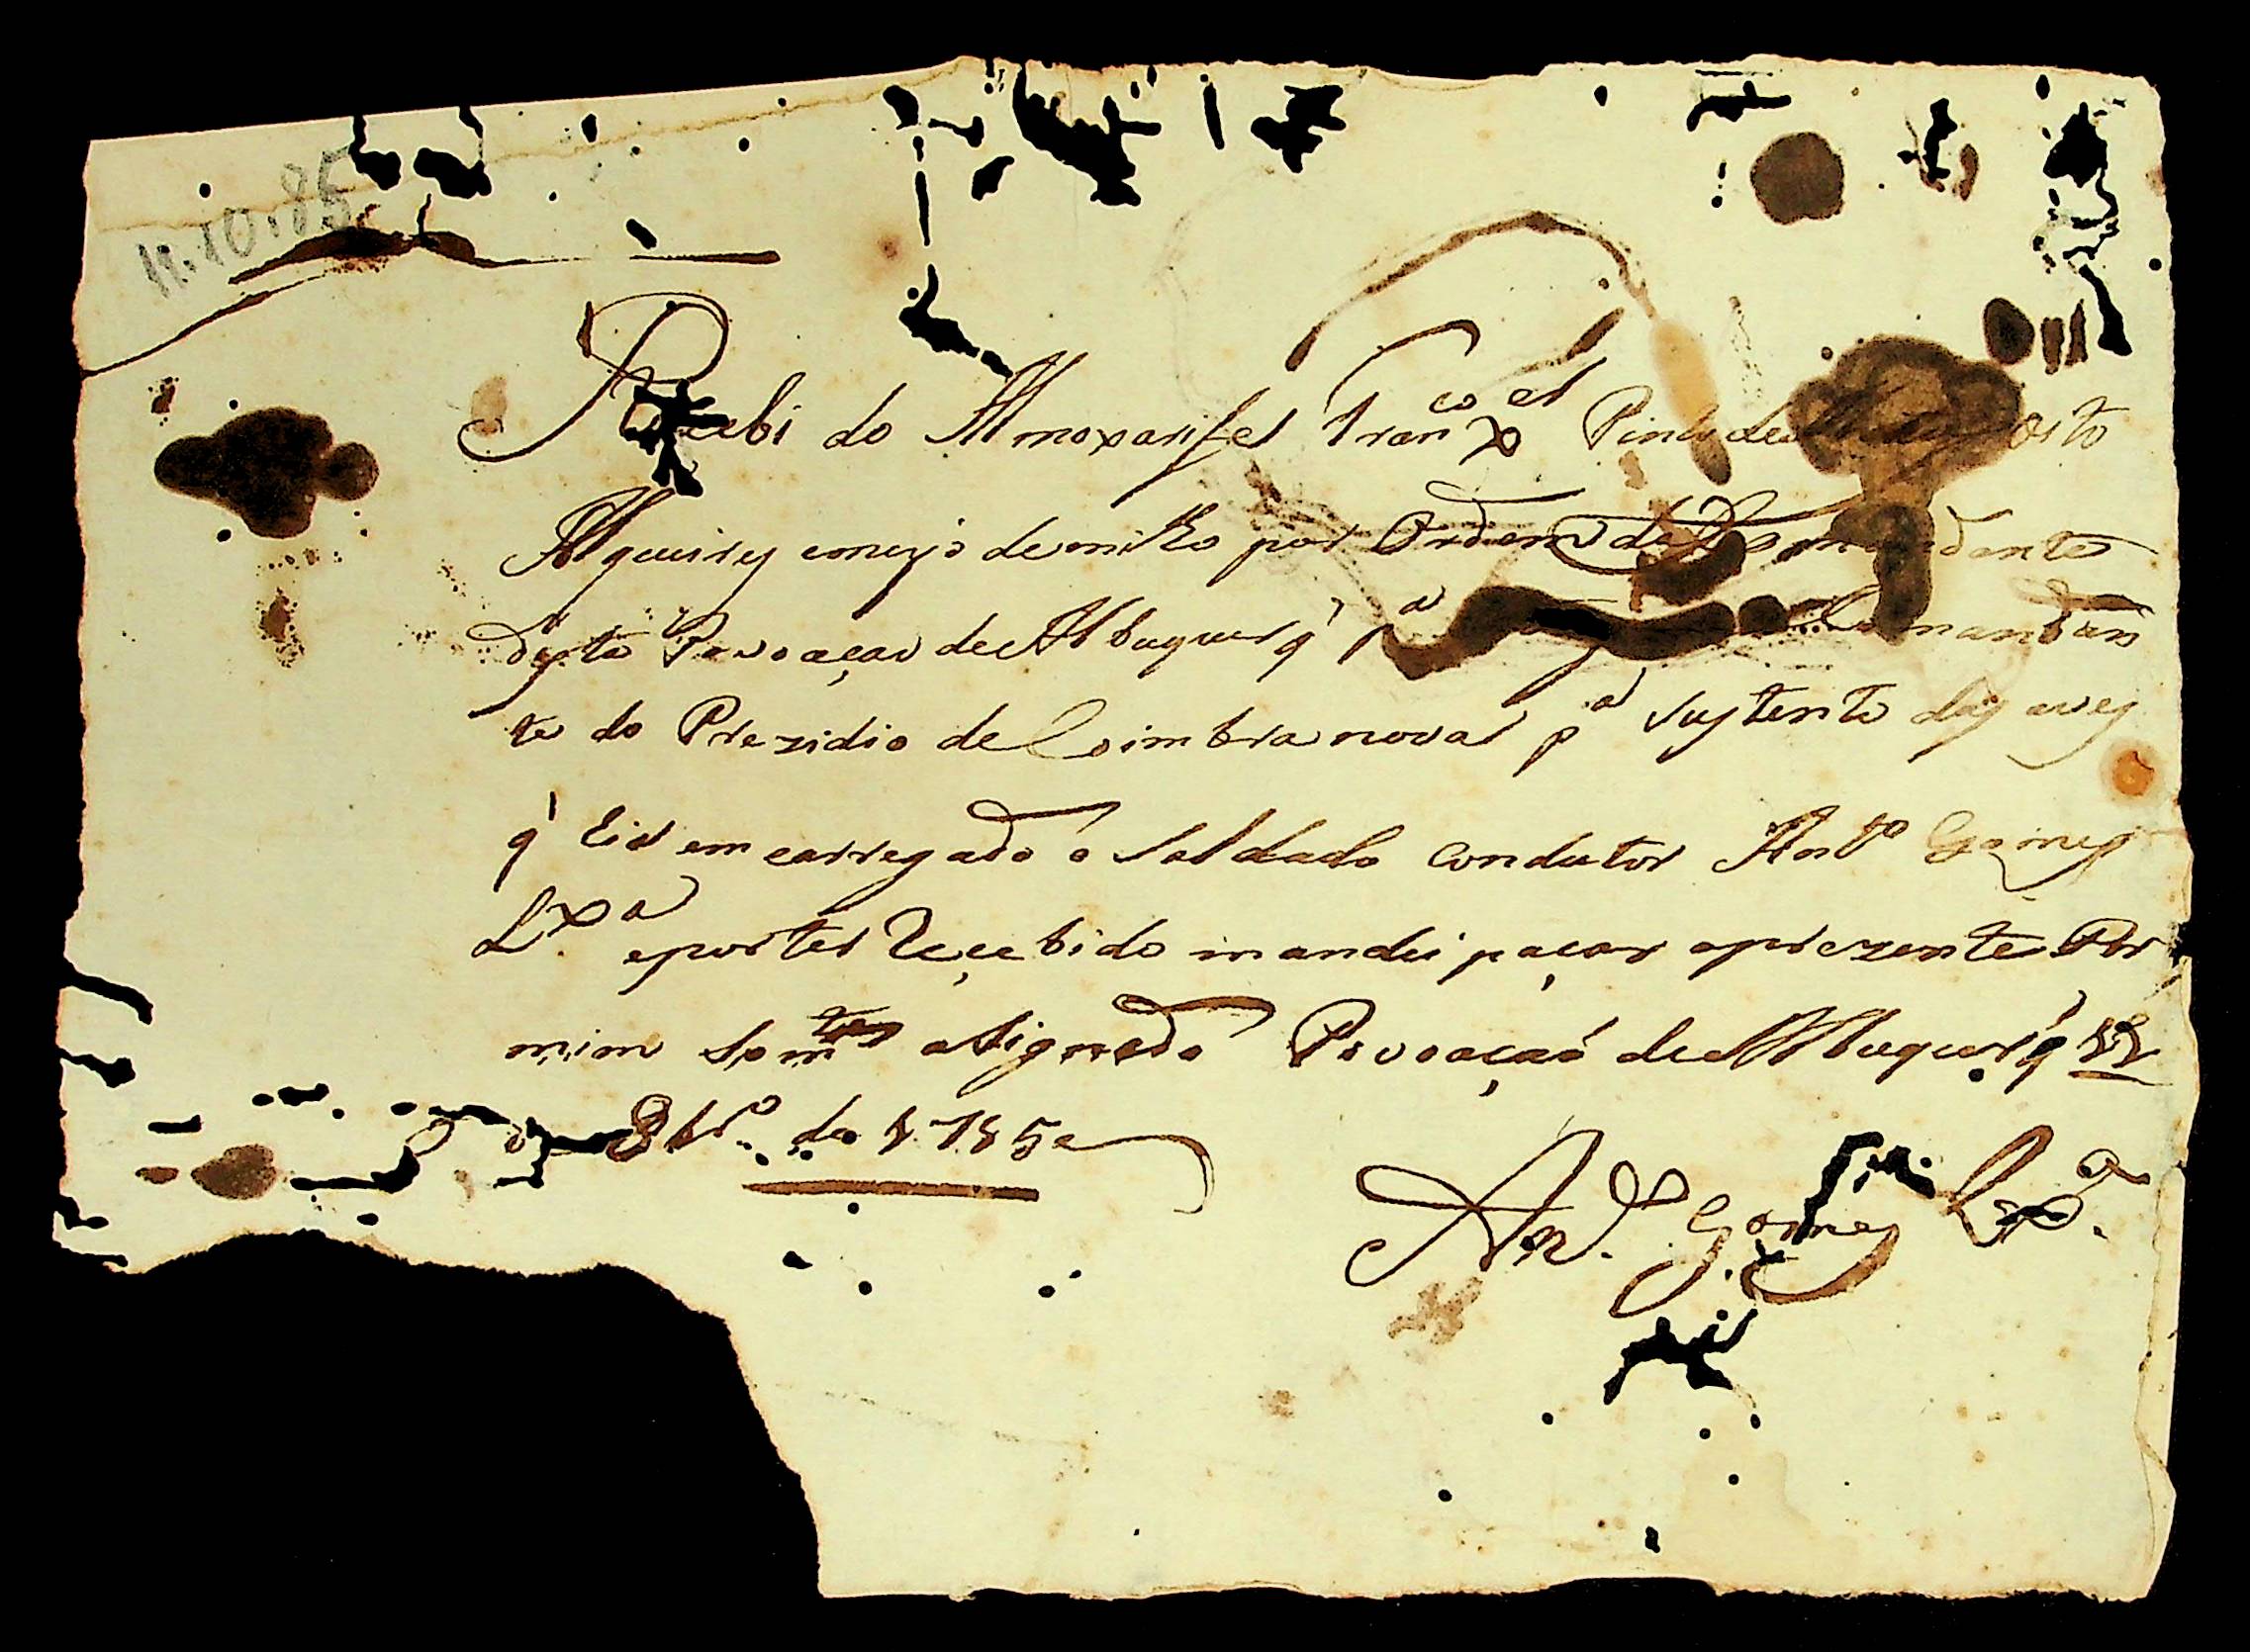 11.10.85
Recebi do Almoxarife Fran.co X.el Pinto de oito
Alqueires emeyo demilho por Ordem do Comandante
desta Povoaçaõ de Albuquerq' p.a Comandan
te do Prezidio de Coimbra nova p.a sustento das aves
q' hia emcarregado o Soldado Condutor Ant.o Gomes
Lx.a eporter Reçebido mandei paçar aprezente Por
mim Som.te asignado Povoaçaõ de Albuquerq' 11
de 8br.o de 1785
Ant.o Gomes Lx.a